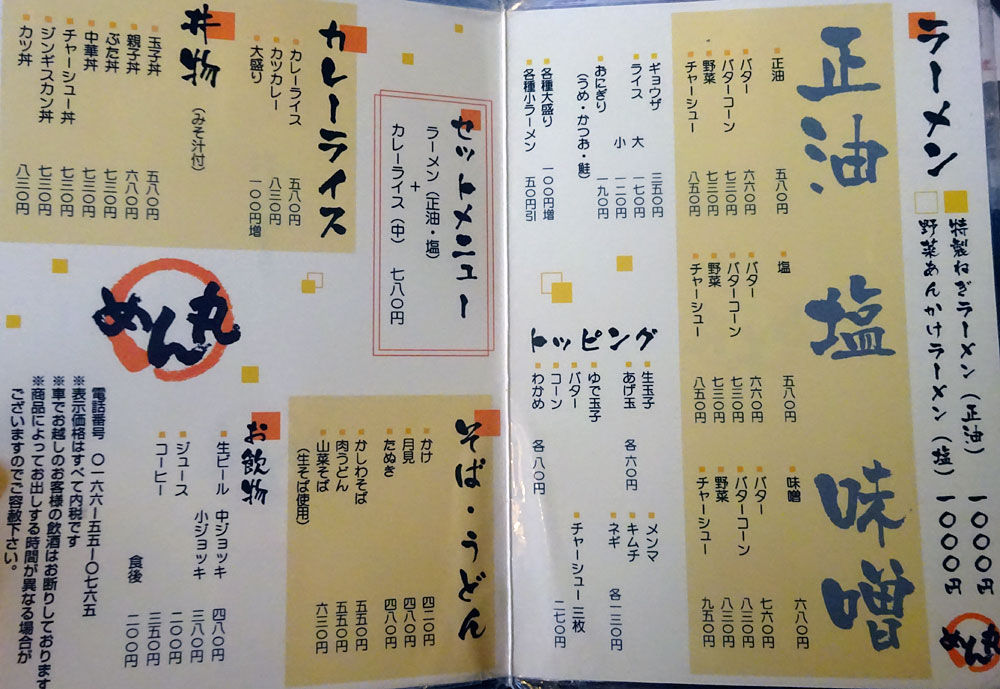 ラーメン
特製ねぎラーメン（正油） 一〇〇〇円
野菜あんかけラーメン（塩） 一〇〇〇円
めん丸
正油
正油 五八〇円
バター 六六〇円
バターコーン 七三〇円
野菜 七三〇円
チャーシュー 八五〇円
塩
塩 五八〇円
バター 六六〇円
バターコーン 七三〇円
野菜 七三〇円
チャーシュー 八五〇円
味噌
味噌 六八〇円
バター 七六〇円
バターコーン 八三〇円
野菜 八三〇円
チャーシュー 九五〇円
ギョウザ 三五〇円
ライス 大 一七〇円
小 一二〇円
おにぎり 一九〇円
（うめ・かつお・鮭）
各種大盛り 一〇〇円増
各種小ラーメン 五〇円引
トッピング
生玉子
あげ玉 各 六〇円
ゆで玉子
バター
コーン
わかめ 各 八〇円
メンマ
キムチ
ネギ 各 一三〇円
チャーシュー 三枚 二七〇円
セットメニュー
ラーメン（正油・塩）
+
カレーライス（中） 七八〇円
そば・うどん
かけ 四二〇円
月見 四八〇円
たぬき 四八〇円
かしわそば 五五〇円
肉うどん 五五〇円
山菜そば 六三〇円
（生そば使用）
カレーライス
カレーライス 五八〇円
カツカレー 八三〇円
大盛り 一〇〇円増
丼物（みそ汁付）
玉子丼 五八〇円
親子丼 六八〇円
ぶた丼 七三〇円
中華丼 七三〇円
チャーシュー丼 七三〇円
ジンギスカン丼 七三〇円
カツ丼 八三〇円
めん丸
お飲物
生ビール 中ジョッキ 四八〇円
小ジョッキ 三八〇円
ジュース 二〇〇円
コーヒー 三五〇円
食後 二〇〇円
電話番号 〇一六六ー五五ー〇七六五
※表示価格はすべて内税です
※車でお越しのお客様の飲酒はお断りしております
※商品によってお出しする時間が異なる場合が
ございますのでご容赦下さい。